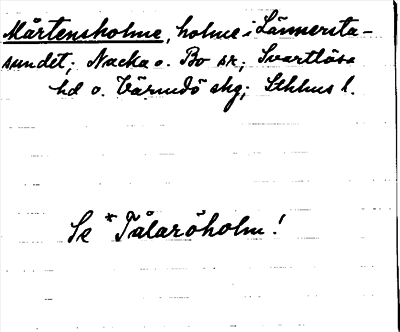 Mårtensholme, holme i Lännersta-
sundet; Nacka o. Bo sn; Svartlösa
hd o. Värmdö skg; Sthlms l.
Se *Talaröholm!